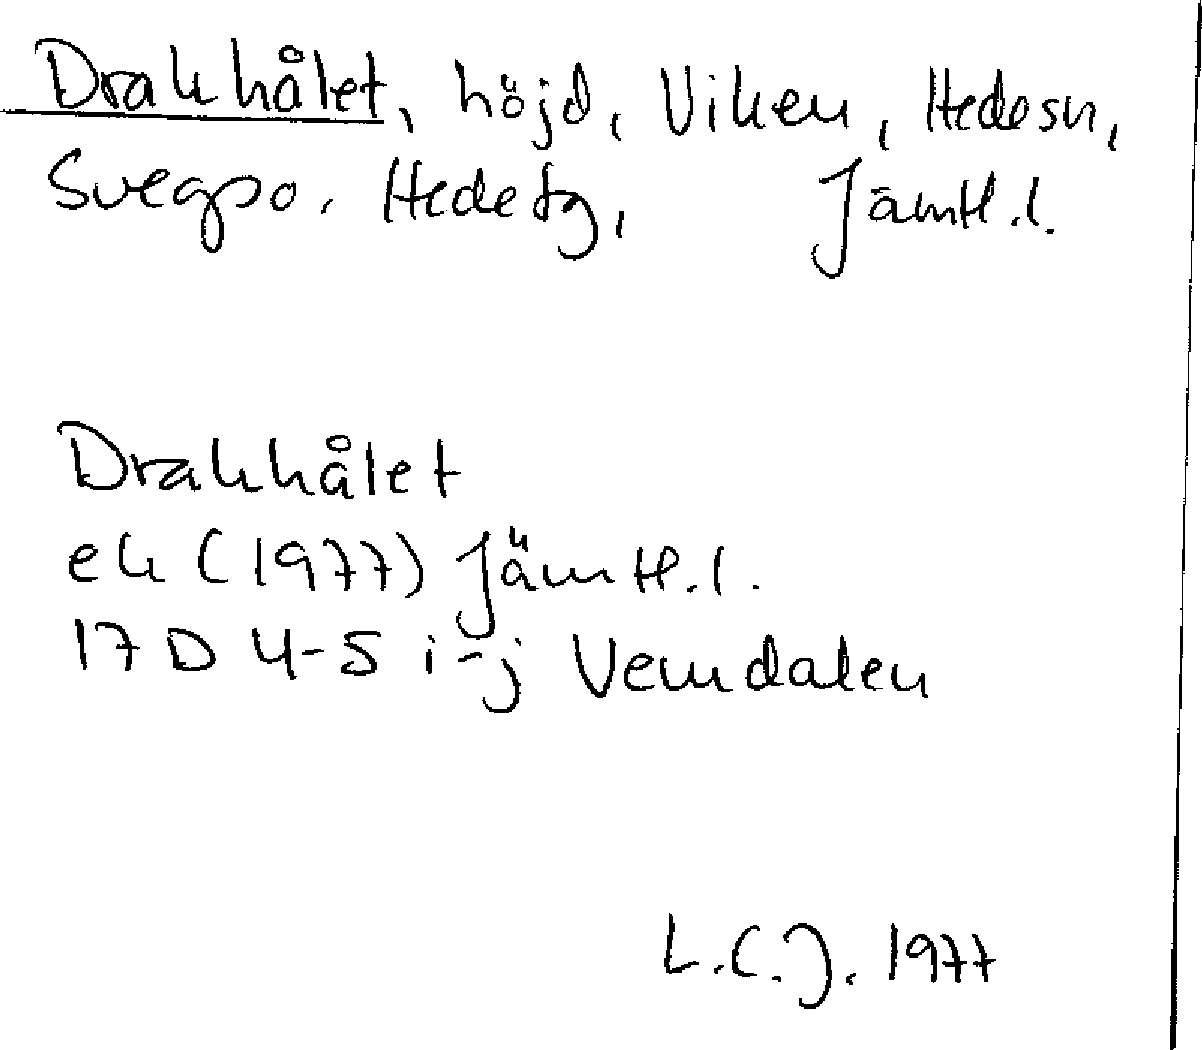 Drakhålet, höjd, Viken, Hedesn,
Svegpo. Hedetg, Jämtl.l.
Drakhålet
ek (1977) Jämtl.l.
17 D 4-5 i-j Vemdalen
L.C.J. 1977